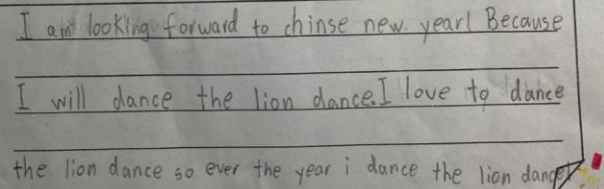 I am looking forward to chinse new year! Because
I will dance the lion dance. I love to dance
the lion dance so ever the year i dance the lion dance